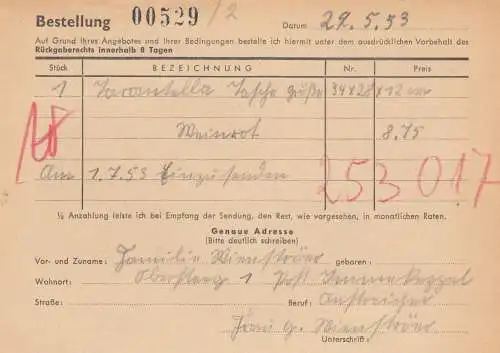 Bestellung 00529 /2 Datum 29.5.53
Auf Grund Ihres Angebotes und Ihrer Bedingungen bestelle ich hiermit unter dem ausdrücklichen Vorbehalt des
Rückgaberechts innerhalb 8 Tagen
Stück BEZEICHNUNG Nr. Preis
1 Tarantella Tasche Größe 34x28x12 cm
Weinrot 8.75
Am 1.7.53 Einzusenden
253017
¼ Anzahlung leiste ich bei Empfang der Sendung, den Rest, wie vorgesehen, in monatlichen Raten.
Genaue Adresse
(Bitte deutlich schreiben)
Vor- und Zuname: Familie Wienströer geboren:
Wohnort: 1 Post
Straße: Beruf: Anstreicher
Frau G. Wienströer
Unterschrift